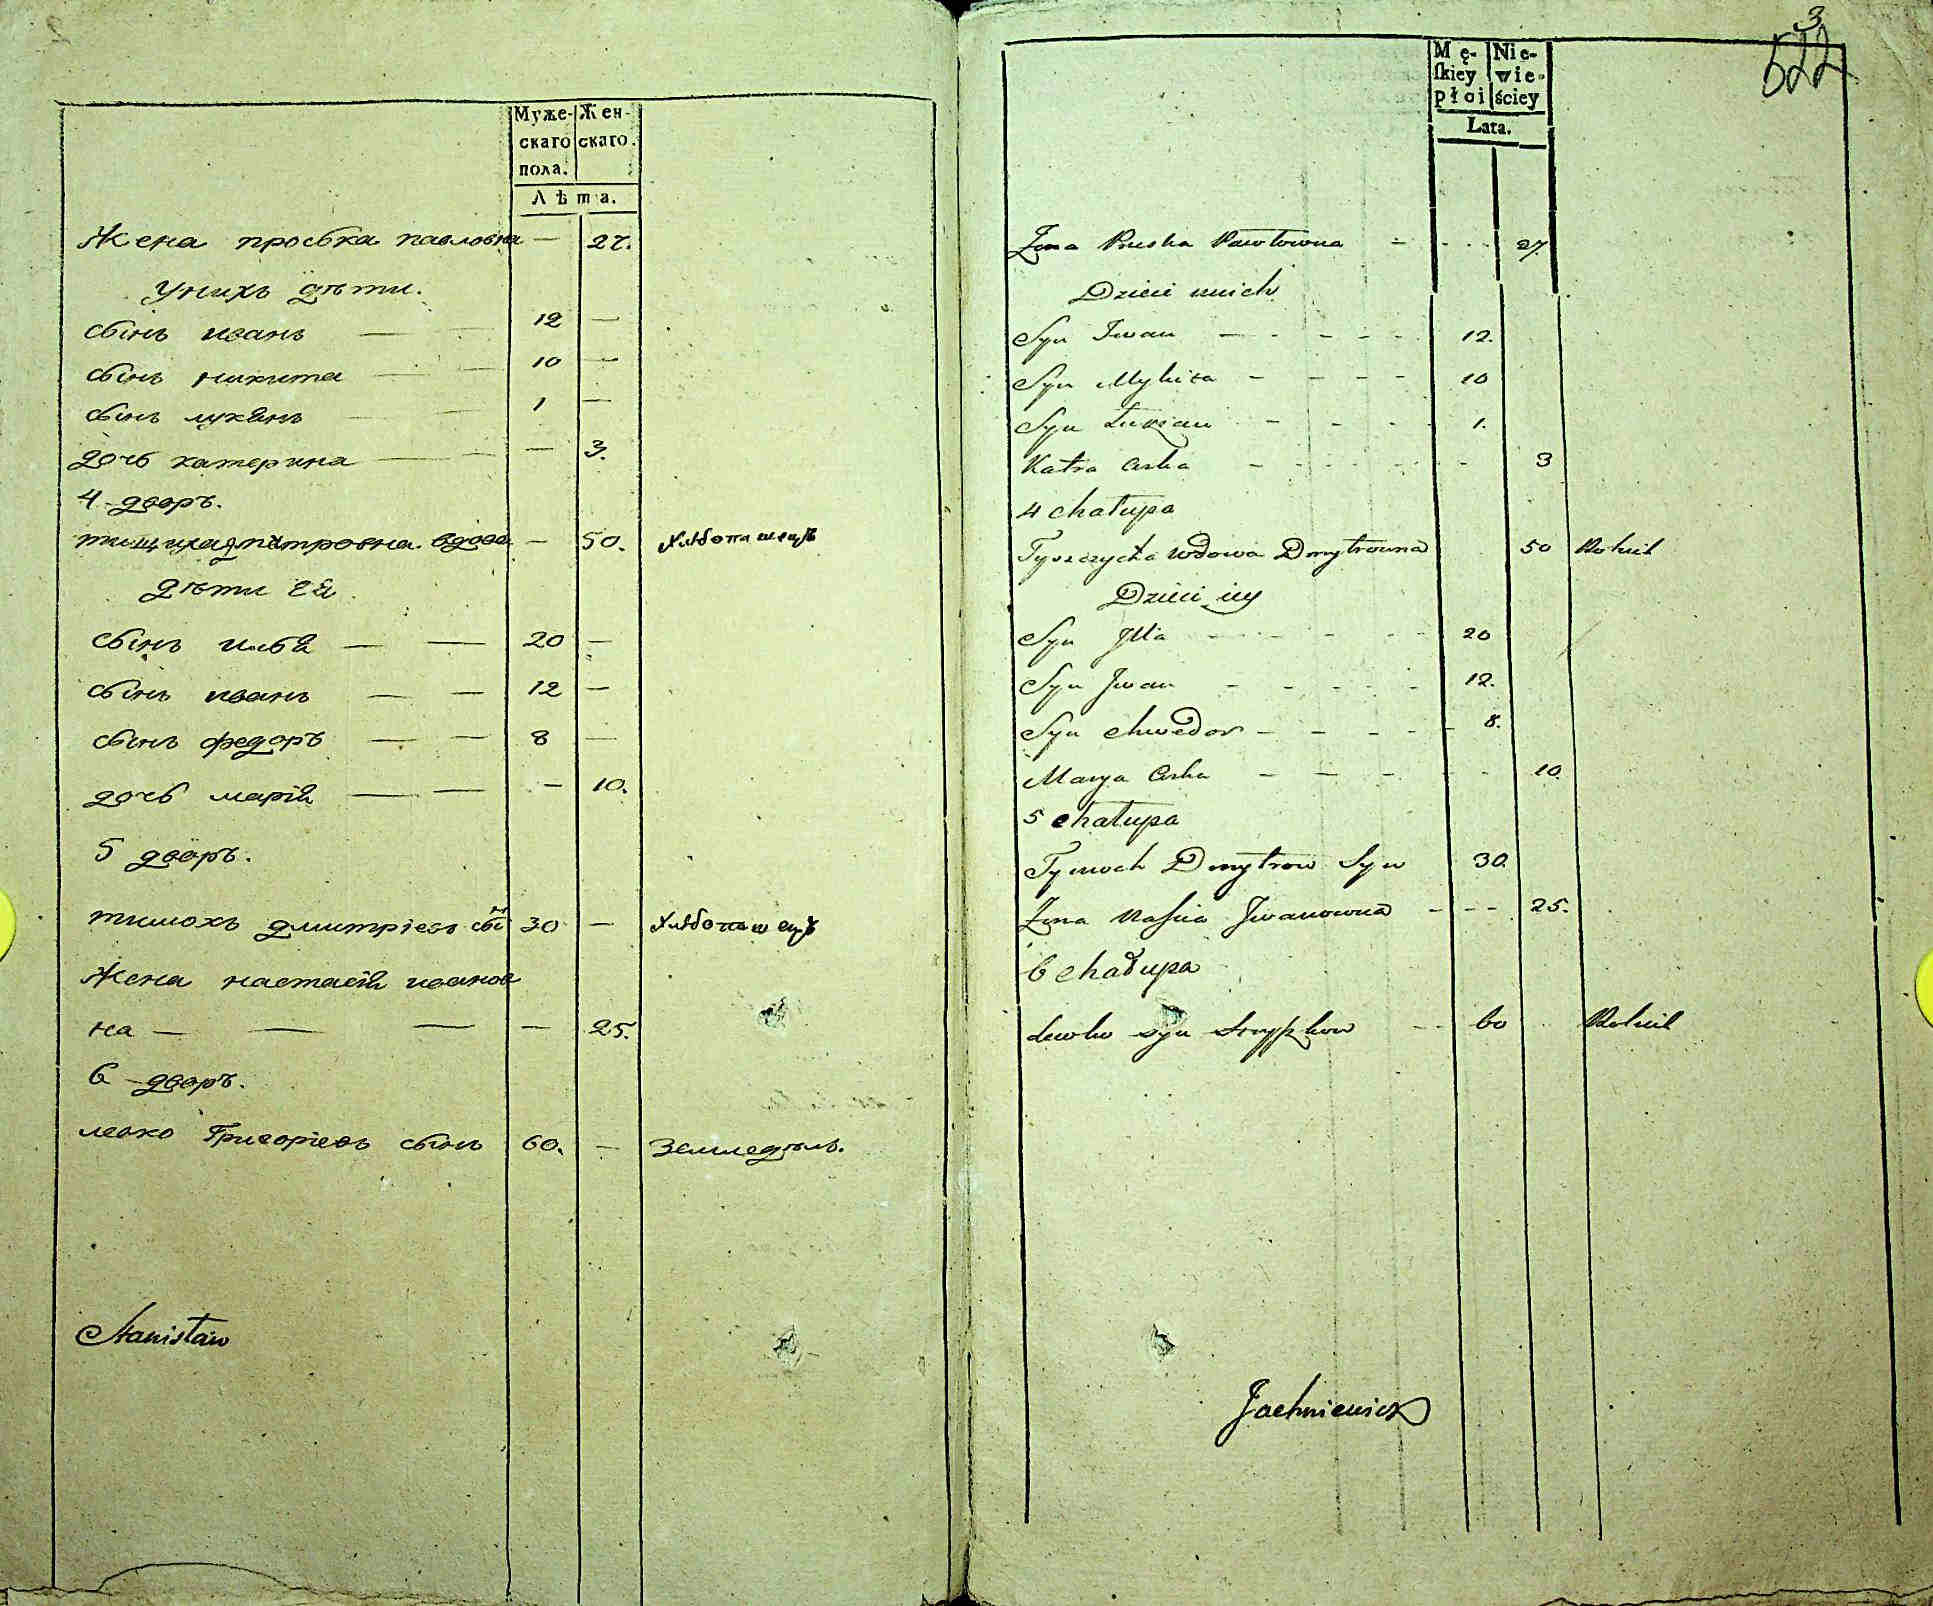 Муже- Жен-
скаго скаго.
пола.
Лѣта.
Жена просбка павловна — 27.
Унихъ дѣти.
сынъ иванъ — 12 —
сынъ никита — 10 —
сынъ лукянъ — 1 —
дочь катерина — — 3.
4 дворъ.
дмитровна вдова — 50.
дѣти ея
сынъ илья — 20 —
сынъ иванъ — 12 —
сынъ федоръ — 8 —
дочь марія — — 10.
5 дворъ.
тимохъ дмитріевъ сын 30 —
Жена настасія иванов
на — — 25.
6 дворъ.
левко Григоріевъ сынъ 60. — Земледѣль.
Stanisław
3
522
Mę- Nie-
skiey wie-
płci ściey
Lata.
Żona Pruska Pawłowna - 27
Dzieci unich
Syn Iwan - 12.
Syn Mykita - 10
Syn Łukian - 1.
Katra Curka - 3
4 chałupa
Tyszczycha Wdowa Dmytrowna 50 Rolnik
Dzieci iey
Syn Jllia - 20
Syn Jwan - 12.
Syn Chwedor - 8.
Marya Curka - 10.
5 chałupa
Tymoch Dmytrow Syn 30.
Żona Nastia Jwanowna - 25.
6 chałupa
Lewko syn - 60 Rolnik
Jachniewicz